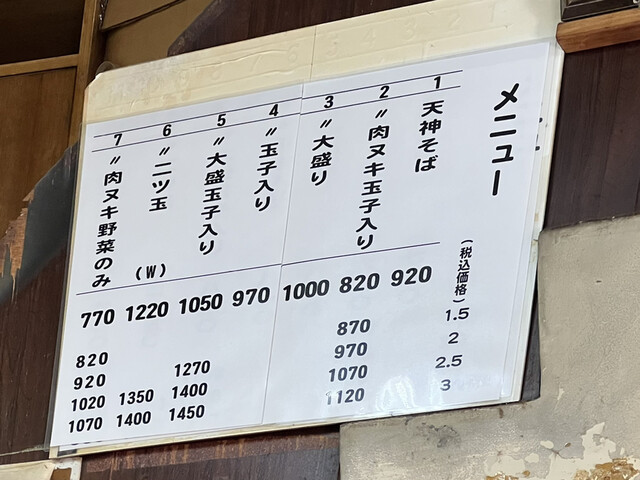 メニュー
(税込価格)
1 天神そば 920
2 〃肉ヌキ玉子入り 820
3 〃大盛り 1000
4 〃玉子入り 970
5 〃大盛玉子入り 1050
6 〃二ツ玉 (W) 1220
7 〃肉ヌキ野菜のみ 770
1.5 870 820
2 970 1270 920
2.5 1070 1400 1350 1020
3 1120 1450 1400 1070